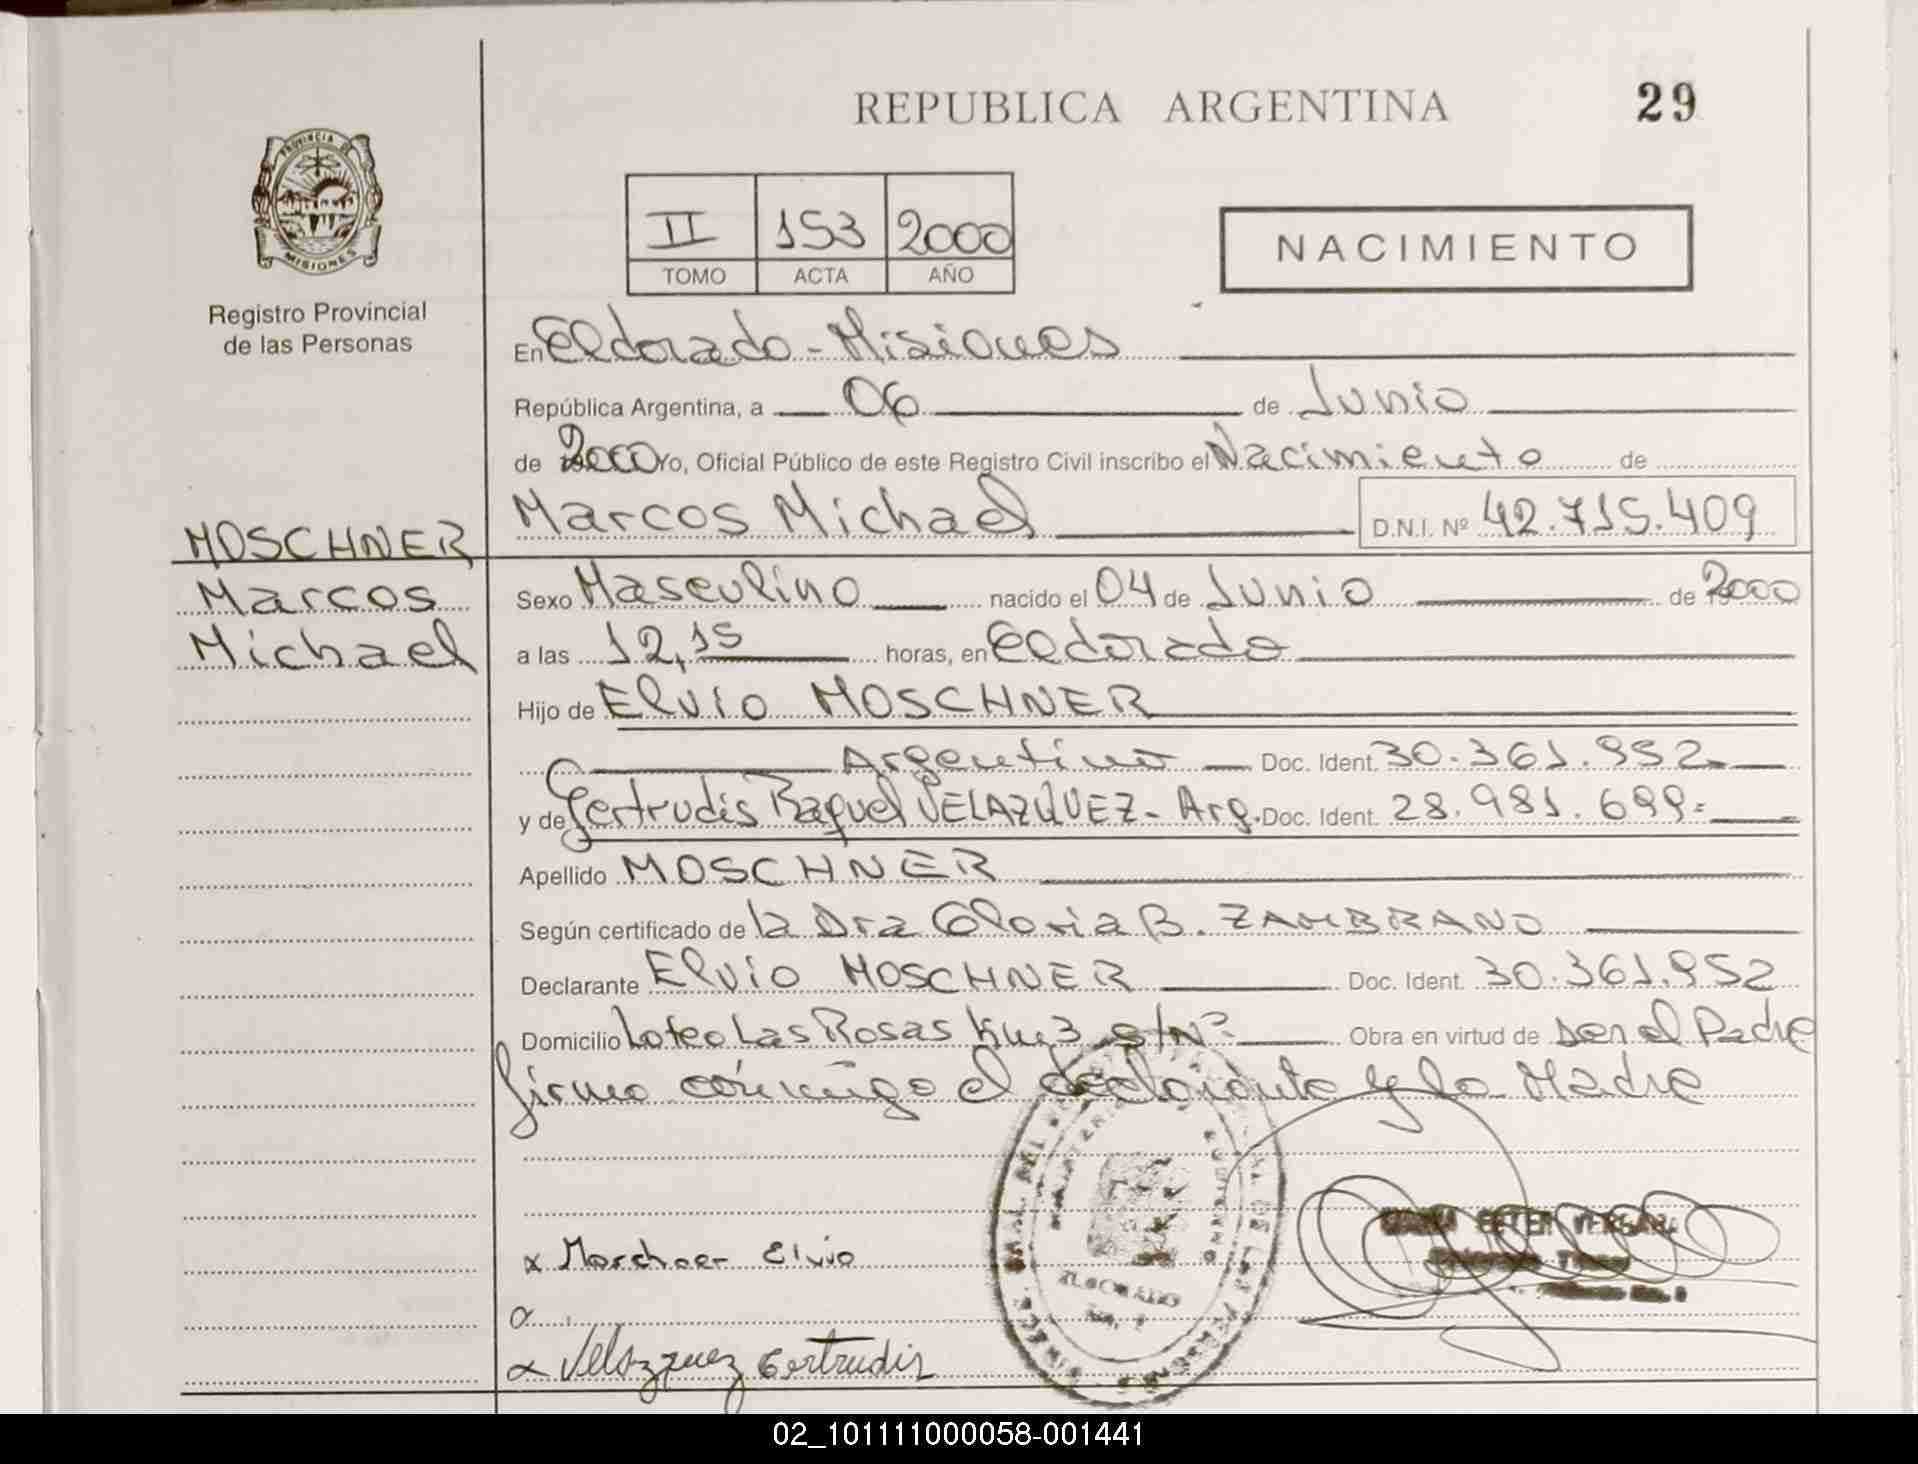 REPUBLICA ARGENTINA
29
PROVINCIA DE
MISIONES
Registro Provincial
de las Personas
II 153 2000
TOMO ACTA AÑO
NACIMIENTO
En Eldorado - Misiones
República Argentina, a 06 de Junio
de 2000 Yo, Oficial Público de este Registro Civil inscribo el Nacimiento de
Marcos Michael D.N.I. Nº 42.715.409
MOSCHNER
Marcos
Michael
Sexo Masculino nacido el 04 de Junio de 2000
a las 12,15 horas, en Eldorado
Hijo de Elvio MOSCHNER
Argentino Doc. Ident. 30.361.952
y de Gertrudis Raquel VELAZQUEZ - Arg. Doc. Ident. 28.981.699
Apellido MOSCHNER
Según certificado de la Dra Gloria B. ZAMBRANO
Declarante Elvio MOSCHNER Doc. Ident. 30.361.952
Domicilio Loteo Las Rosas Km 3 s/Nº Obra en virtud de ser el Padre
firma conmigo el declarante y la Madre
x Moschner Elvio
x Velazquez Gertrudis
ELDORADO
VERGARA
02_101111000058-001441